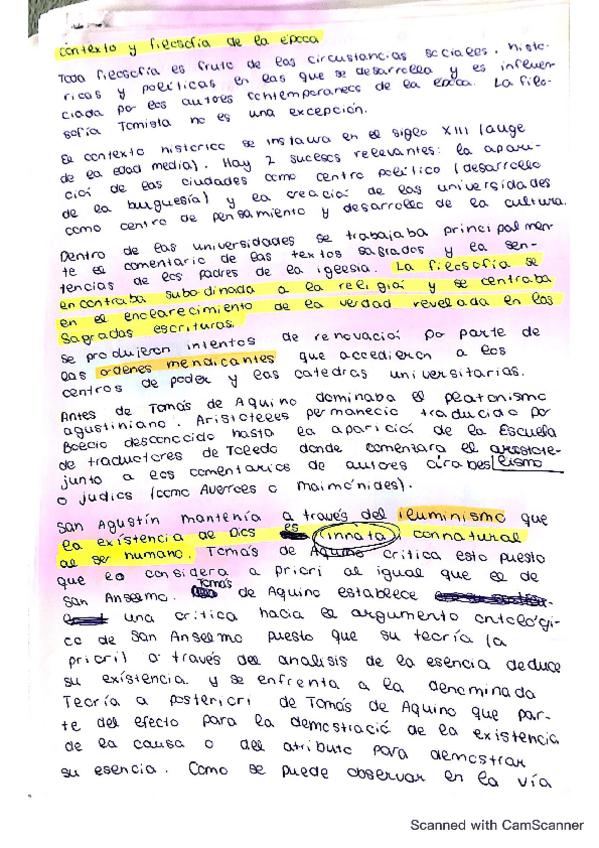 contexto y filosofía de la época
Toda filosofía es fruto de las circustancias sociales, histo-
ricas y políticas en las que se desarrolla y es influen-
ciada por los autores contemporaneos de la época. La filo-
sofía Tomista no es una excepción.
El contexto histórico se instaura en el siglo XIII (auge
de la edad media). Hay 2 sucesos relevantes: la apari-
ció de las ciudades como centro político (desarrollo
de la burguesía) y la creació de las universidades
como centro de pensamiento y desarrollo de la cultura.
Dentro de las universidades se trabajaba principalmen-
te el comentario de los textos sagrados y la sen-
tencias de los padres de la iglesia. La filosofía se
encontraba subordinada a la religió y se centraba
en el enclarecimiento de la verdad revelada en las
Sagradas escrituras.
Se produjeron intentos de renovació por parte de
las ordenes mendicantes que accedieron a los
centros de poder y las catedras universitarias.
Antes de Tomás de Aquino dominaba el platonismo
agustiniano. Aristoteles permanecio traducido por
Boecio desconocido hasta la aparición de la Escuela
de traductores de Toledo donde comentara el aristote-
junto a los comentarios de autores árabes lismo
o judios (como Averroes o Maimónides).
San Agustín mantenía a través del iluminismo que
la existencia de Dios es (innata) connatural
al ser humano. Tomás de Aquino critica esto puesto
que lo considera a priori al igual que el de
San Anselmo. Tomás de Aquino establece
una critica hacia el argumento ontológi-
co de San Anselmo puesto que su teoría (a
priori) a través del analisis de la esencia deduce
su existencia y se enfrenta a la denominada
Teoría a posteriori de Tomás de Aquino que par-
te del efecto para la demostració de la existencia
de la causa o del atributo para demostrar
su esencia. Como se puede observar en la vía
Scanned with CamScanner